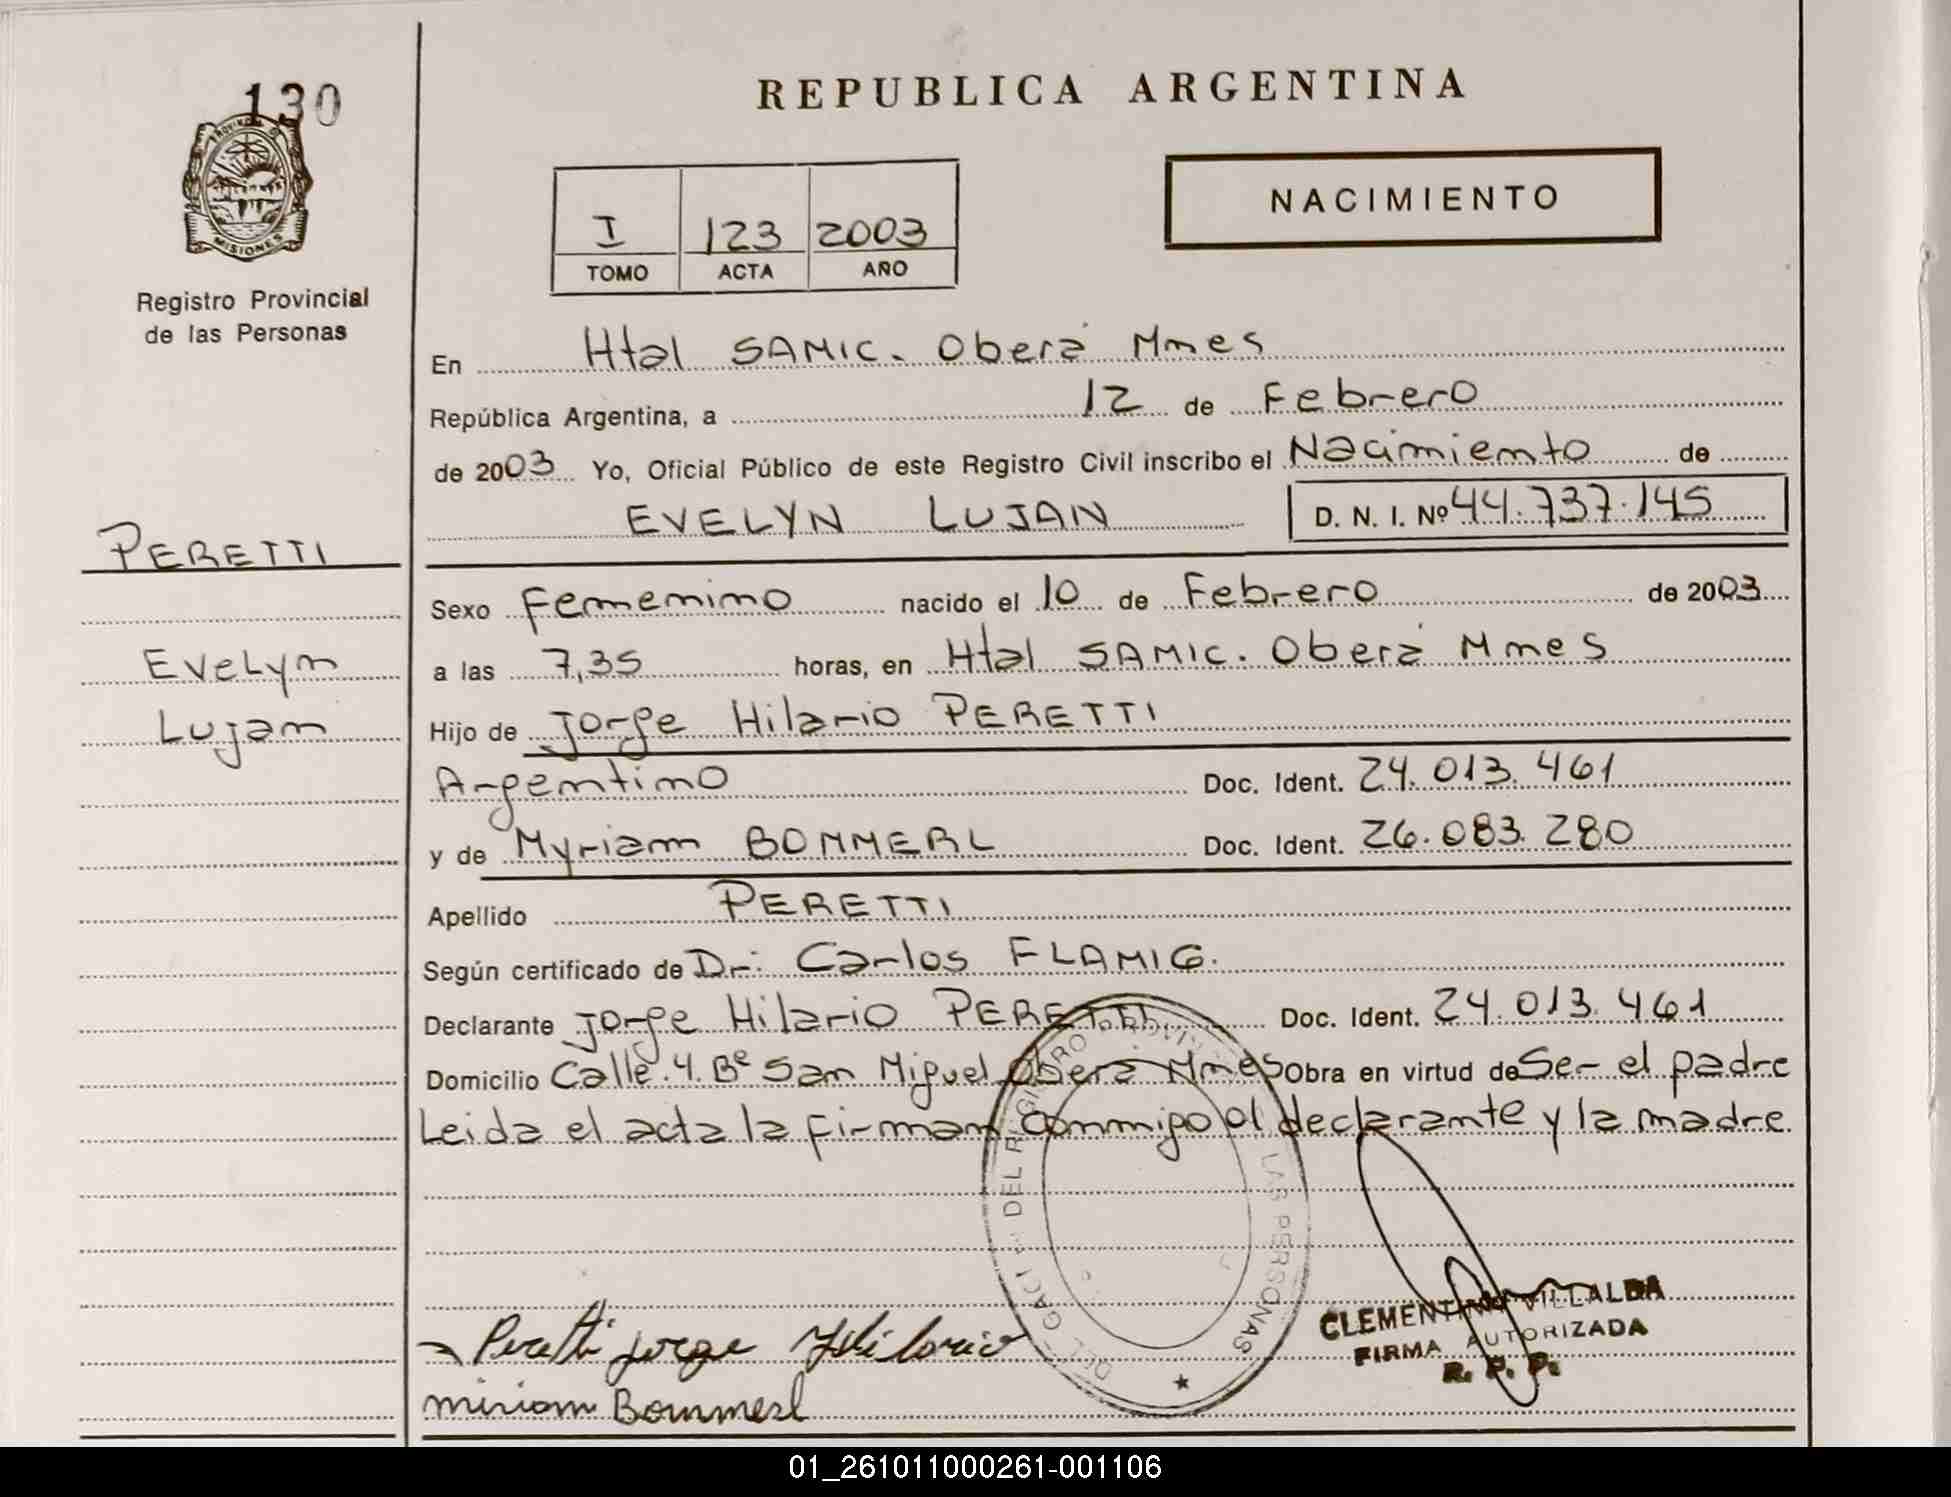 130
REPUBLICA ARGENTINA
NACIMIENTO
I 123 2003
TOMO ACTA AÑO
MISIONES
Registro Provincial
de las Personas
En Htal SAMIC. Oberá Mnes
República Argentina, a 12 de Febrero
de 2003 Yo, Oficial Público de este Registro Civil inscribo el Nacimiento de
EVELYN LUJAN D. N. I. Nº 44.737.145
PERETTI
Evelyn
Lujan
Sexo Femenino nacido el 10 de Febrero de 2003
a las 7,35 horas, en Htal SAMIC. Oberá Mnes
Hijo de Jorge Hilario PERETTI
Argentino Doc. Ident. 24.013.461
y de Myriam BOMMERL Doc. Ident. 26.083.280
Apellido PERETTI
Según certificado de Dr: Carlos FLAMIG.
Declarante Jorge Hilario PERETTI Doc. Ident. 24.013.461
Domicilio Calle.4.Bº San Miguel Oberá Mnes Obra en virtud de Ser el padre
Leida el acta la firman conmigo el declarante y la madre.
DEL REGISTRO PROVINCIAL LAS PERSONAS
CLEMENTINO VILLALBA
FIRMA AUTORIZADA
R. P. P.
Peretti Jorge Hilario
miriam Bommerl
01_261011000261-001106